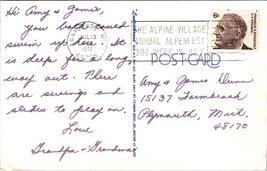 Hi Amy & Jamie,
You both could
swim up here. It
is deep for a long
way out. There
are swings and
slides to play on.
Love
Grandpa & Grandma
JUL 13
THE ALPINE VILLAGE
ANNUAL ALPENFEST
3RD WEEK IN JULY
6c
POST CARD
Amy & James Dunn
15137 Farmbrook
Plymouth, Mich.
48170